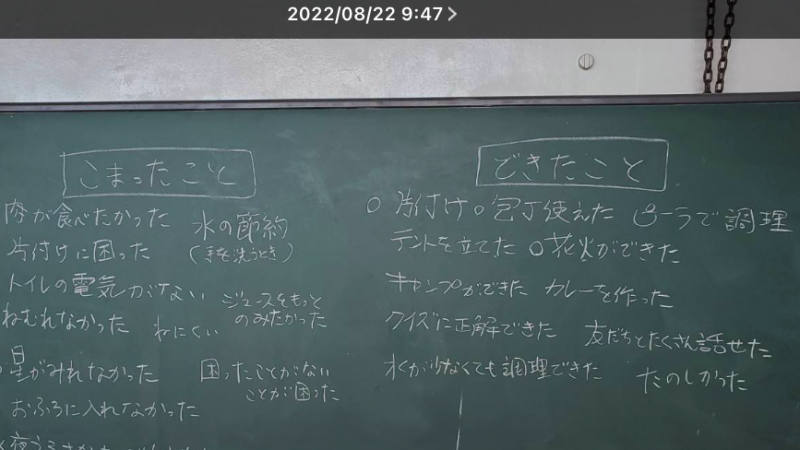 2022/08/22 9:47
こまったこと
肉が食べたかった
水の節約
(手を洗うとき)
片付けに困った
トイルの電気がない
ジュースをもっと
のみたかった
ねむれなかった
ねにくい
星がみれなかった
困ったことがない
ことが困った
おふろに入れなかった
できたこと
○ 片付け○包丁使えた ピーラーで調理
テントを立てた ○花火ができた
キャンプができた カレーを作った
クイズに正解できた
友だちとたくさん話せた
水が少なくても調理できた
たのしかった